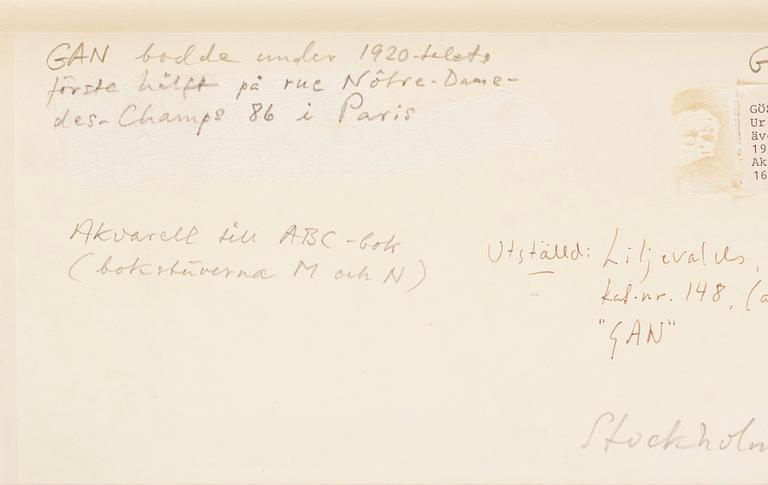 GAN bodde under 1920-talets
förste hälft på rue Nôtre-Dame-
des-Champs 86 i Paris
G
GÖS
Ur
äv
19
Ak
16
Akvarell till ABC-bok
(bokstäverna M och N)
Utställd: Liljevalchs,
kat.nr. 148, (a
"GAN"
Stockholm